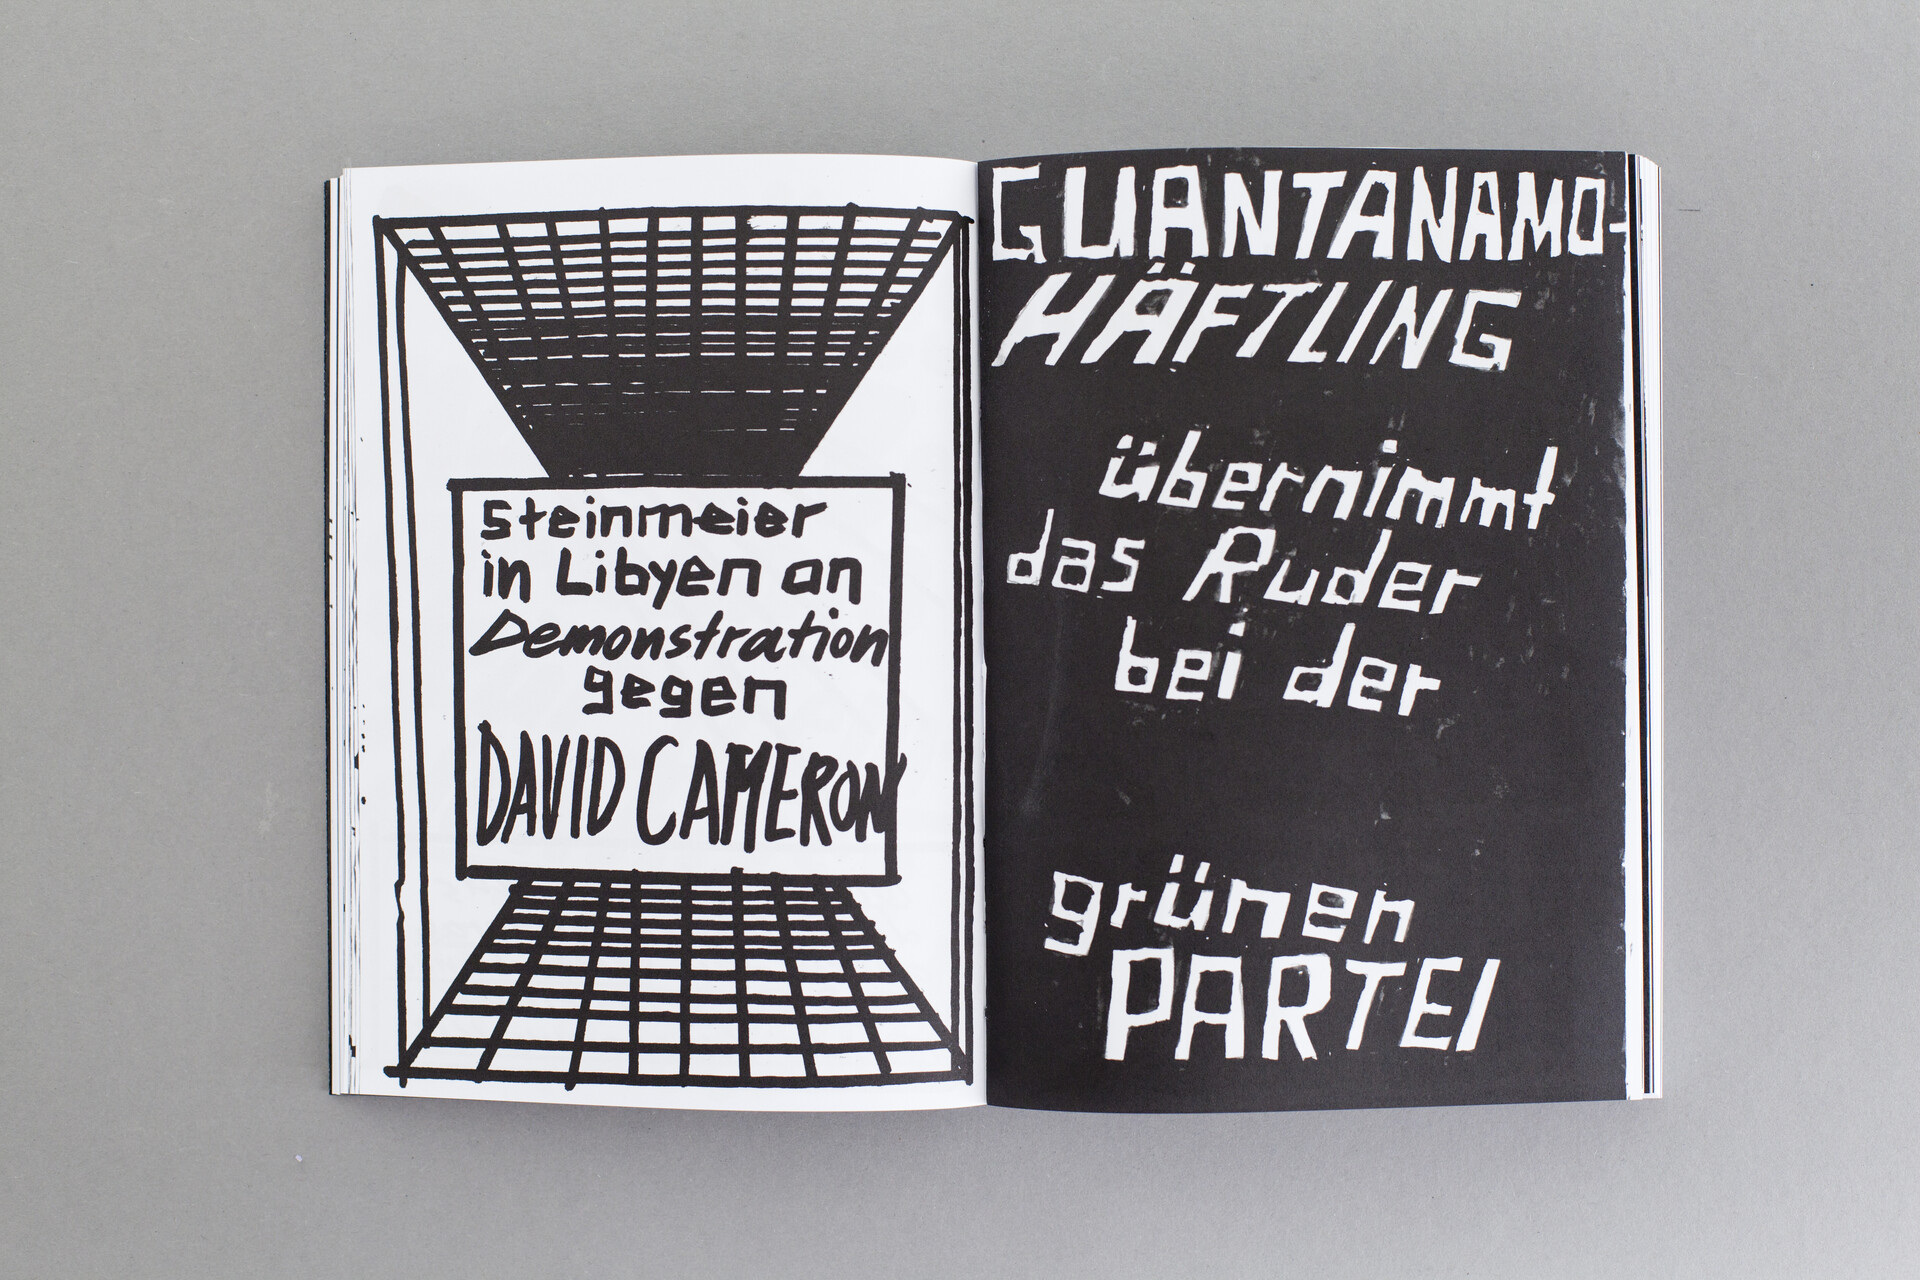 Steinmeier
in Libyen an
Demonstration
gegen
DAVID CAMERON
GUANTANAMO-
HÄFTLING
übernimmt
das Ruder
bei der
grünen
PARTEI